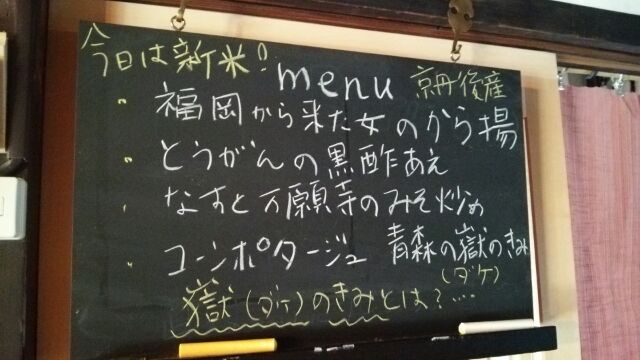 今日は新米！
menu 京丹後産
・福岡から来た女のから揚
・とうがんの黒酢あえ
・なすと万願寺のみそ炒め
・コーンポタージュ 青森の嶽のきみ
(ダケ)
嶽(ダケ)のきみとは？....